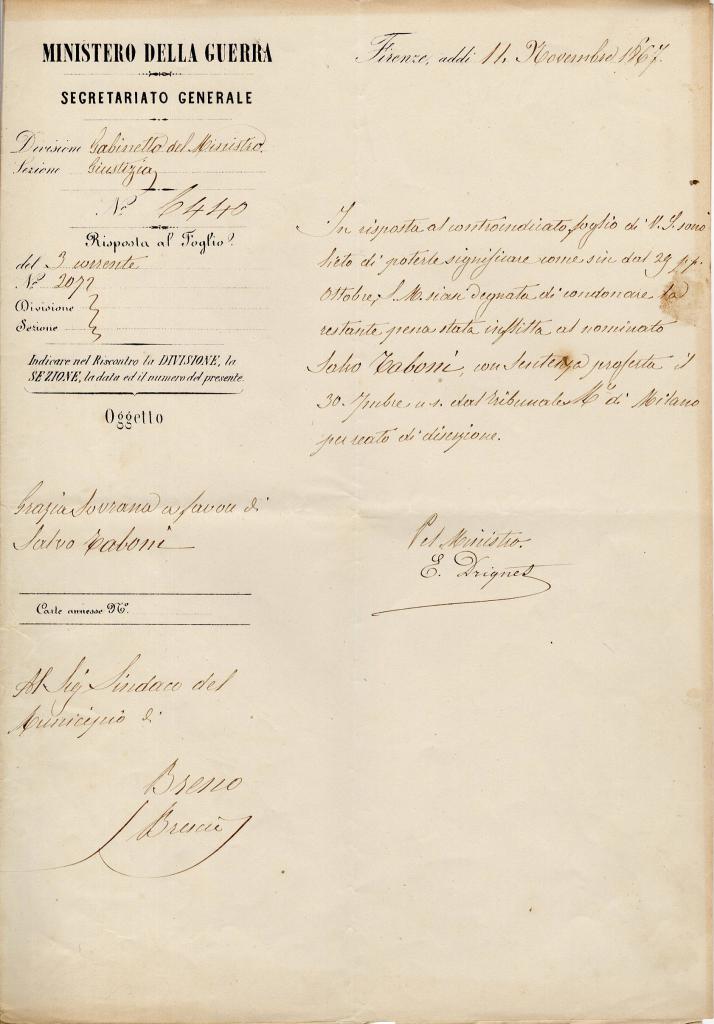 MINISTERO DELLA GUERRA
SEGRETARIATO GENERALE
Divisione Gabinetto del Ministro.
Sezione Giustizia
N.º 6440
Risposta al Foglio
del 3 corrente
N.º 2072
Divisione
Sezione
Indicare nel Riscontro la DIVISIONE, la
SEZIONE, la data ed il numero del presente.
Oggetto
Grazia Sovrana a favore di
Salvo Taboni
Carte annesse N.º
Al Sig Sindaco del
Municipio di
Breno
Brescia
Firenze, addì 11, Novembre 1867.
In risposta al controindicato foglio di V. S. sono
lieto di poterle significare come sin dal 29 p.p.
Ottobre, S. M. siasi degnata di condonare la
restante pena stata inflitta al nominato
Salvo Taboni, con Sentenza proferta il
30. 7mbre u.s. dal tribunale M.e di Milano
per reato di diserzione.
Pel Ministro.
E. Driquet